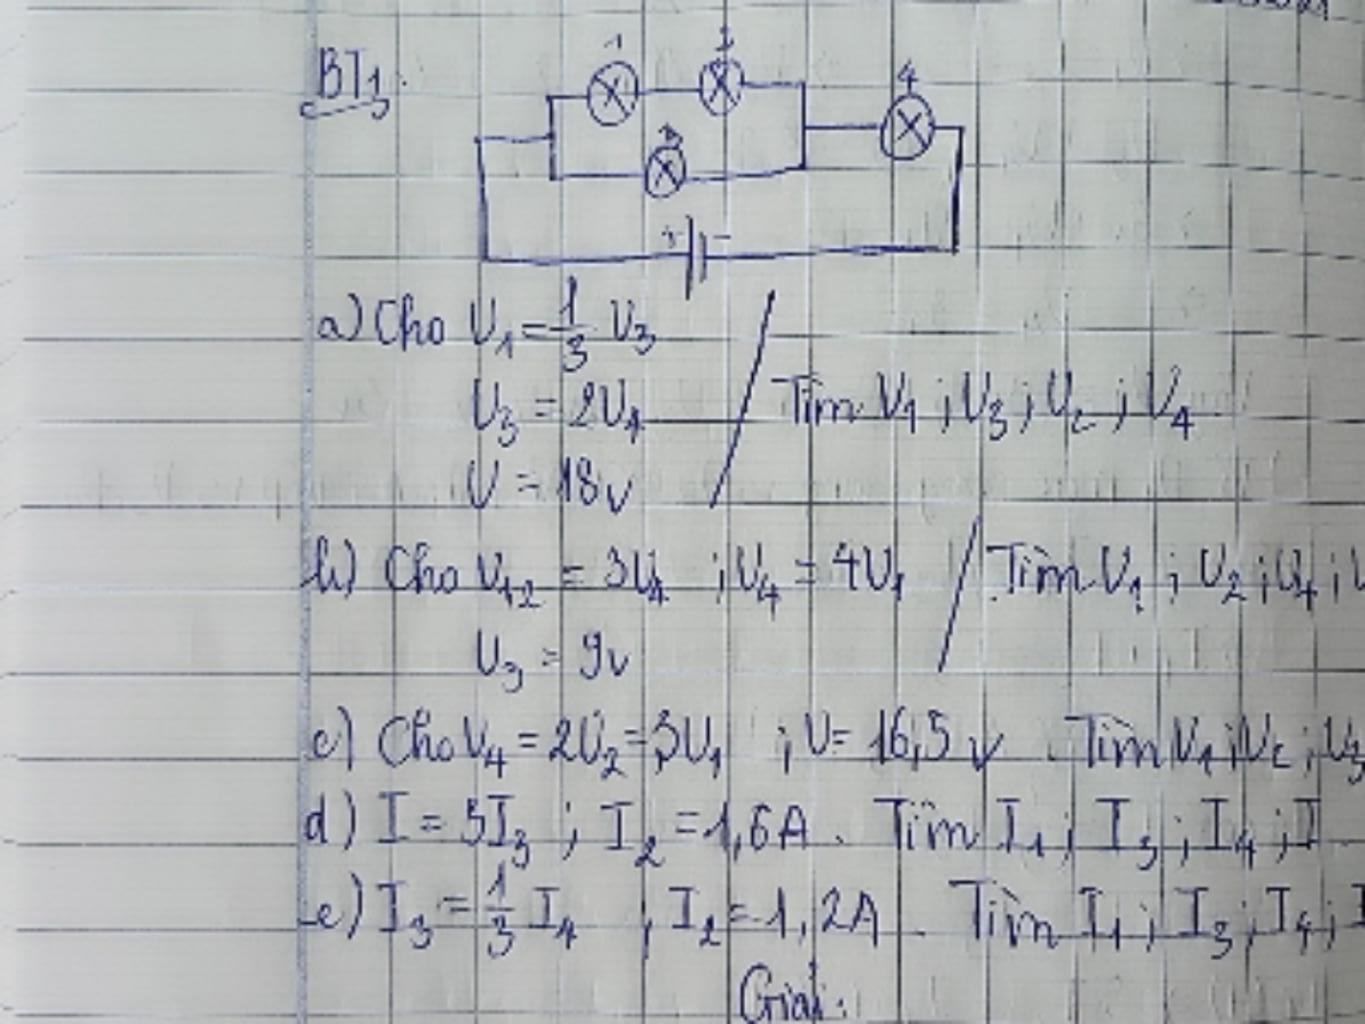 BT1.
1 2 4
3
+ -
a) Cho U₁ = 1/3 U₃
U₃ = 2U₄ / Tìm U₁ ; U₃ ; U₂ ; U₄
U = 18v
b) Cho U₁₂ = 3U₁ ; U₄ = 4U₁ / Tìm U₁ ; U₂ ; U₄ ; U
U₃ = 9v
c) Cho U₄ = 2U₂ = 3U₁ ; U = 16,5 v. Tìm U₁ ; U₂ ; U₃
d) I = 5I₃ ; I₂ = 1,6A. Tìm I₁ ; I₃ ; I₄ ; I
e) I₃ = 1/3 I₄ ; I₂ = 1,2A. Tìm I₁ ; I₃ ; I₄ ; I
Giải: